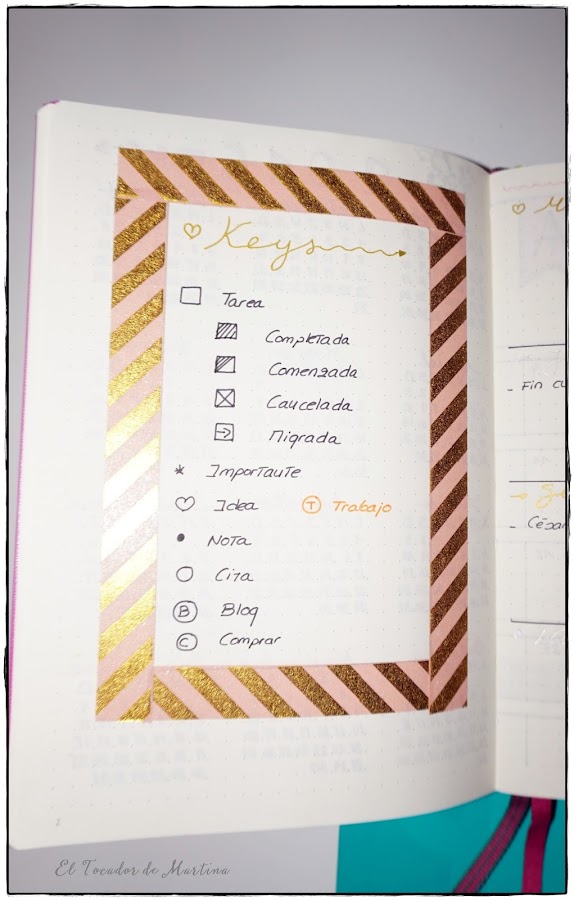 Keys
Tarea
Completada
Comenzada
Cancelada
Migrada
* Importante
Idea T Trabajo
• Nota
Cita
B Blog
C Comprar
- Fin
- César
El Tocador de Martina